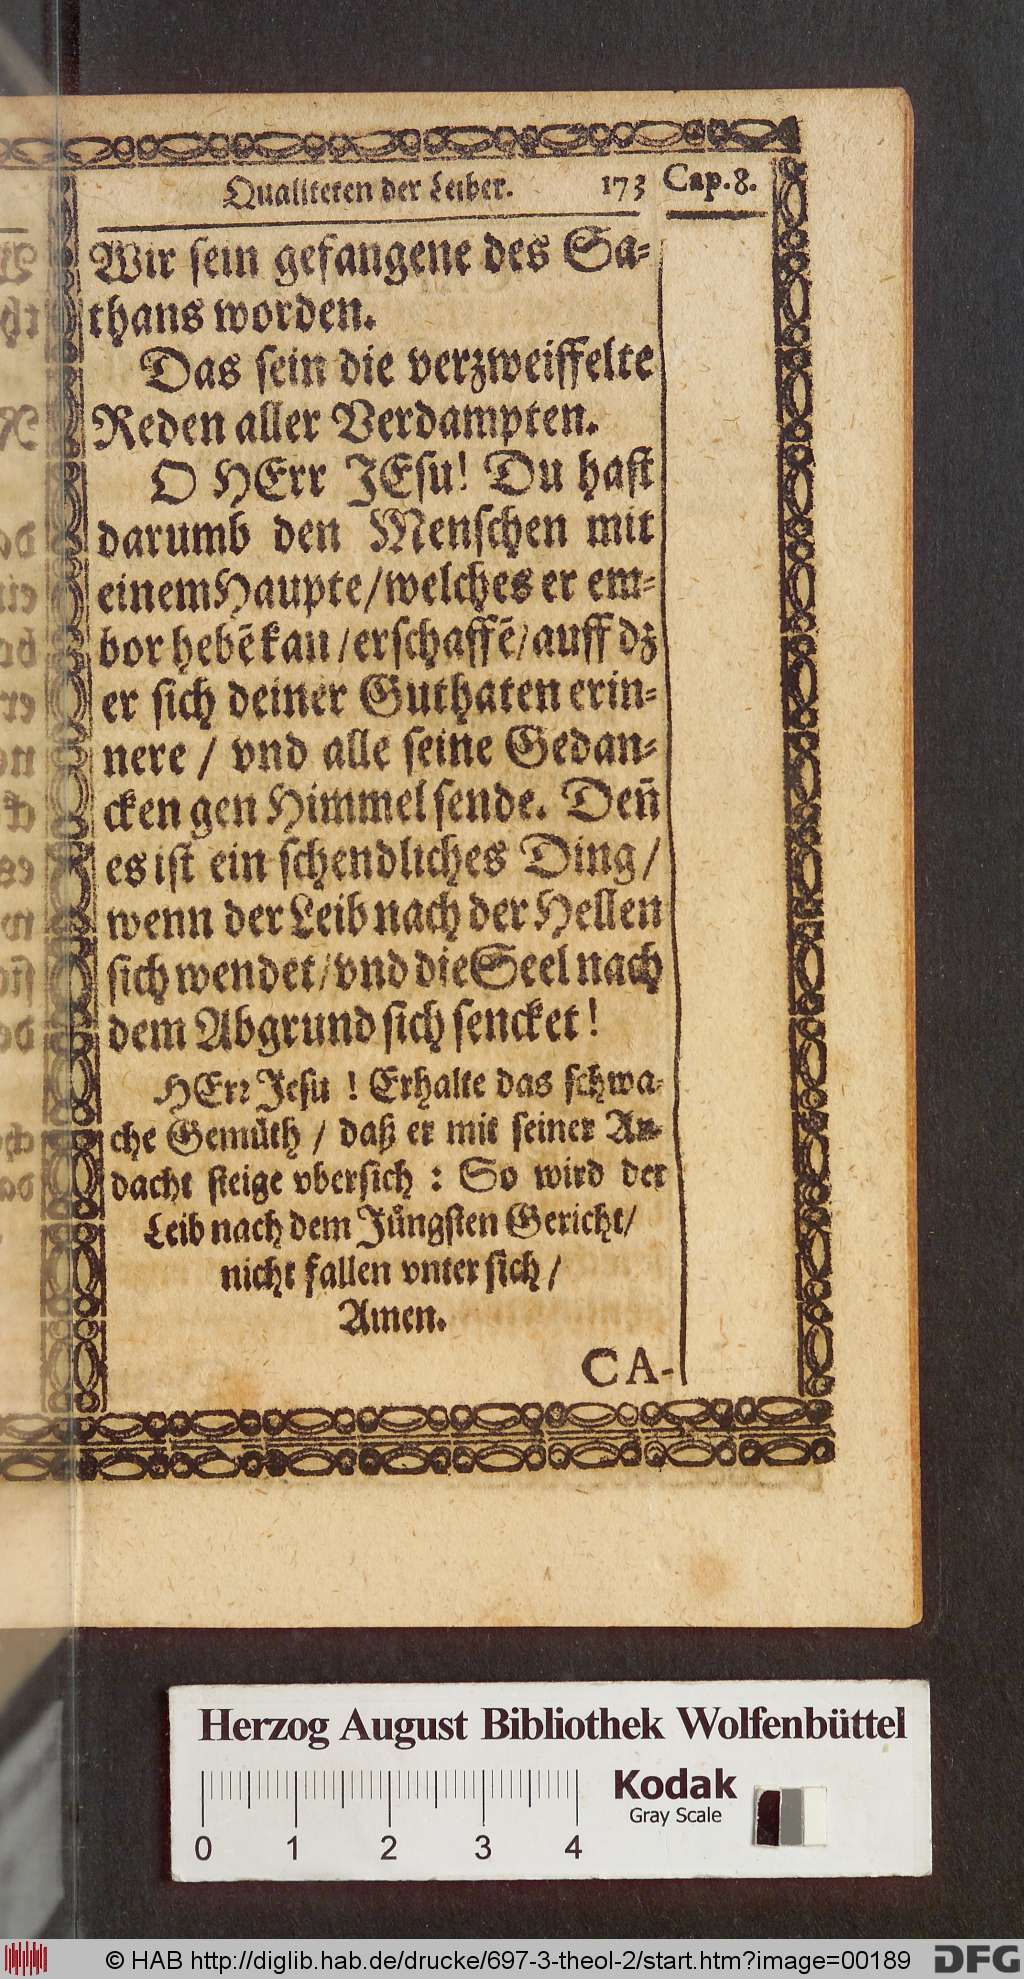 Qualiteten der Leiber. 173 Cap. 8.
Wir sein gefangene des Sa-
thans worden.
Das sein die verzweiffelte
Reden aller Verdampten.
O HErr JEsu! Du hast
darumb den Menschen mit
einem Haupte/welches er em-
bor hebē kan/erschaffē/auff dz
er sich deiner Guthaten erin-
nere / vnd alle seine Gedan-
cken gen Himmel sende. Den̄
es ist ein schendliches Ding/
wenn der Leib nach der Hellen
sich wendet/vnd die Seel nach
dem Abgrund sich sencket!
HErꝛ Jesu ! Erhalte das schwa-
che Gemüth / daß er mit seiner An-
dacht steige vbersich : So wird der
Leib nach dem Jüngsten Gericht/
nicht fallen vnter sich /
Amen.
CA-
Herzog August Bibliothek Wolfenbüttel
Kodak
Gray Scale
0 1 2 3 4
© HAB http://diglib.hab.de/drucke/697-3-theol-2/start.htm?image=00189 DFG